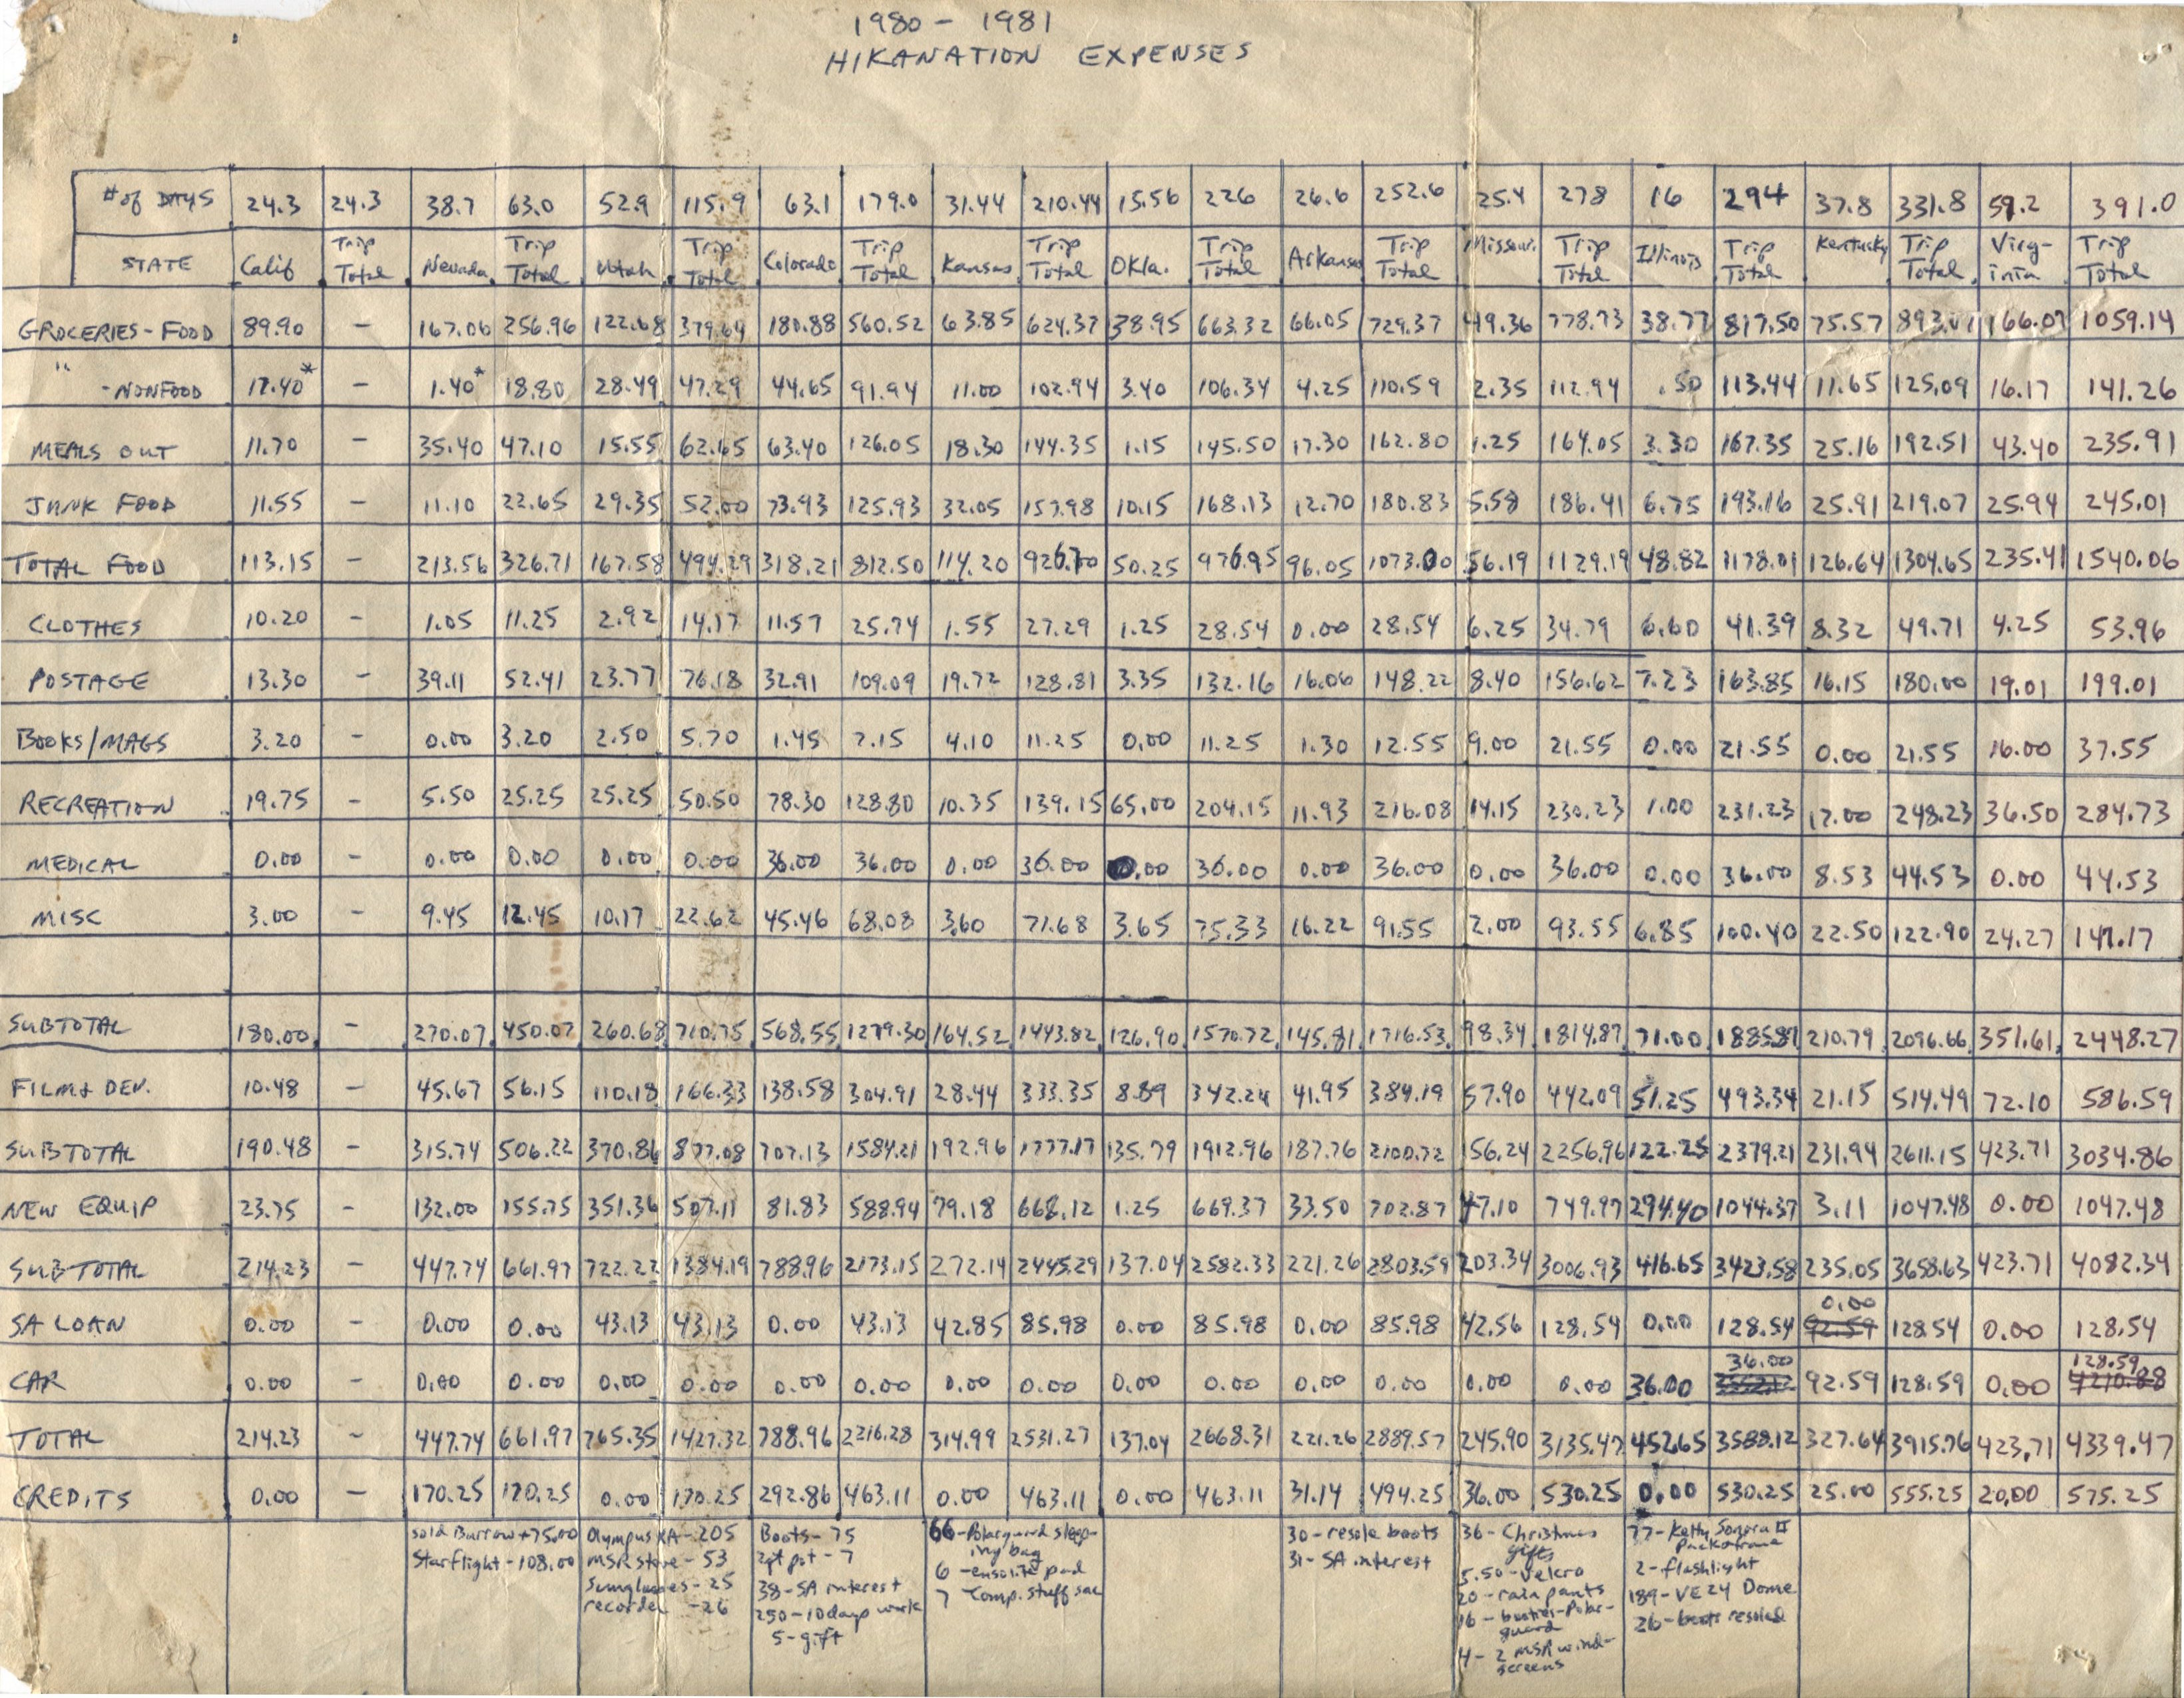 1980 - 1981
HIKANATION EXPENSES
# of DAYS 24.3 24.3 38.7 63.0 52.9 115.9 63.1 179.0 31.44 210.44 15.56 226 26.6 252.6 25.4 278 16 294 37.8 331.8 59.2 391.0
STATE Calif Trip Total Nevada Trip Total Utah Trip Total Colorado Trip Total Kansas Trip Total Okla. Trip Total Arkansas Trip Total Missouri Trip Total Illinois Trip Total Kentucky Trip Total Virg-inia Trip Total
GROCERIES - FOOD 89.90 - 167.06 256.96 122.68 379.64 180.88 560.52 63.85 624.37 38.95 663.32 66.05 729.37 49.36 778.73 38.77 817.50 75.57 893.07 166.07 1059.14
" - NONFOOD 17.40* - 1.40* 18.80 28.49 47.29 44.65 91.94 11.00 102.94 3.40 106.34 4.25 110.59 2.35 112.94 .50 113.44 11.65 125.09 16.17 141.26
MEALS OUT 11.70 - 35.40 47.10 15.55 62.65 63.40 126.05 18.30 144.35 1.15 145.50 17.30 162.80 1.25 164.05 3.30 167.35 25.16 192.51 43.40 235.91
JUNK FOOD 11.55 - 11.10 22.65 29.35 52.00 73.93 125.93 32.05 157.98 10.15 168.13 12.70 180.83 5.58 186.41 6.75 193.16 25.91 219.07 25.94 245.01
TOTAL FOOD 113.15 - 213.56 326.71 167.58 494.29 318.21 812.50 114.20 926.70 50.25 976.95 96.05 1073.00 56.19 1129.19 48.82 1178.01 126.64 1304.65 235.41 1540.06
CLOTHES 10.20 - 1.05 11.25 2.92 14.17 11.57 25.74 1.55 27.29 1.25 28.54 0.00 28.54 6.25 34.79 6.60 41.39 8.32 49.71 4.25 53.96
POSTAGE 13.30 - 39.11 52.41 23.77 76.18 32.91 109.09 19.72 128.81 3.35 132.16 16.06 148.22 8.40 156.62 7.23 163.85 16.15 180.00 19.01 199.01
BOOKS/MAGS 3.20 - 0.00 3.20 2.50 5.70 1.45 7.15 4.10 11.25 0.00 11.25 1.30 12.55 9.00 21.55 0.00 21.55 0.00 21.55 16.00 37.55
RECREATION 19.75 - 5.50 25.25 25.25 50.50 78.30 128.80 10.35 139.15 65.00 204.15 11.93 216.08 14.15 230.23 1.00 231.23 17.00 248.23 36.50 284.73
MEDICAL 0.00 - 0.00 0.00 0.00 0.00 36.00 36.00 0.00 36.00 0.00 36.00 0.00 36.00 0.00 36.00 0.00 36.00 8.53 44.53 0.00 44.53
MISC 3.00 - 9.45 12.45 10.17 22.62 45.46 68.08 3.60 71.68 3.65 75.33 16.22 91.55 2.00 93.55 6.85 100.40 22.50 122.90 24.27 147.17
SUBTOTAL 180.00 - 270.07 450.07 260.68 710.75 568.55 1279.30 164.52 1443.82 126.90 1570.72 145.81 1716.53 98.34 1814.87 71.00 1885.87 210.79 2096.66 351.61 2448.27
FILM & DEV. 10.48 - 45.67 56.15 110.18 166.33 138.58 304.91 28.44 333.35 8.89 342.24 41.95 384.19 57.90 442.09 51.25 493.34 21.15 514.49 72.10 586.59
SUBTOTAL 190.48 - 315.74 506.22 370.86 877.08 707.13 1584.21 192.96 1777.17 135.79 1912.96 187.76 2100.72 156.24 2256.96 122.25 2379.21 231.94 2611.15 423.71 3034.86
NEW EQUIP 23.75 - 132.00 155.75 351.36 507.11 81.83 588.94 79.18 668.12 1.25 669.37 33.50 702.87 47.10 749.97 294.40 1044.37 3.11 1047.48 0.00 1047.48
SUBTOTAL 214.23 - 447.74 661.97 722.22 1384.19 788.96 2173.15 272.14 2445.29 137.04 2582.33 221.26 2803.59 203.34 3006.93 416.65 3423.58 235.05 3658.63 423.71 4082.34
SA LOAN 0.00 - 0.00 0.00 43.13 43.13 0.00 43.13 42.85 85.98 0.00 85.98 0.00 85.98 42.56 128.54 0.00 128.54 0.00 92.59 128.54 0.00 128.54
CAR 0.00 - 0.00 0.00 0.00 0.00 0.00 0.00 0.00 0.00 0.00 0.00 0.00 0.00 0.00 0.00 36.00 36.00 92.59 128.59 0.00 128.59 4210.88
TOTAL 214.23 - 447.74 661.97 765.35 1427.32 788.96 2216.28 314.99 2531.27 137.04 2668.31 221.26 2889.57 245.90 3135.47 452.65 3588.12 327.64 3915.76 423.71 4339.47
CREDITS 0.00 - 170.25 170.25 0.00 170.25 292.86 463.11 0.00 463.11 0.00 463.11 31.14 494.25 36.00 530.25 0.00 530.25 25.00 555.25 20.00 575.25
sold Burrow +75.00
Starflight - 108.00
Olympus XA - 205
MSR stove - 53
Sunglasses - 25
recorder - 26
Boots - 75
2qt pot - 7
38 - SA interest
250 - 10 days work
5 - gift
66 - Polarguard sleep-
ing bag
6 - ensolite pad
7 Comp. stuff sac
30 - resole boots
31 - SA interest
36 - Christmas
gifts
5.50 - Velcro
20 - rain pants
16 - booties - Polar-
guard
4 - 2 MSR wind-
screens
77 - Kelty Sonora II
Packframe
2 - flashlight
189 - VE 24 Dome
26 - boots resoled